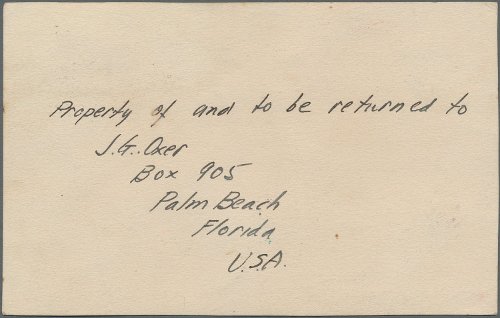 Property of and to be returned to
J.G. Oxer
Box 905
Palm Beach
Florida
U.S.A.